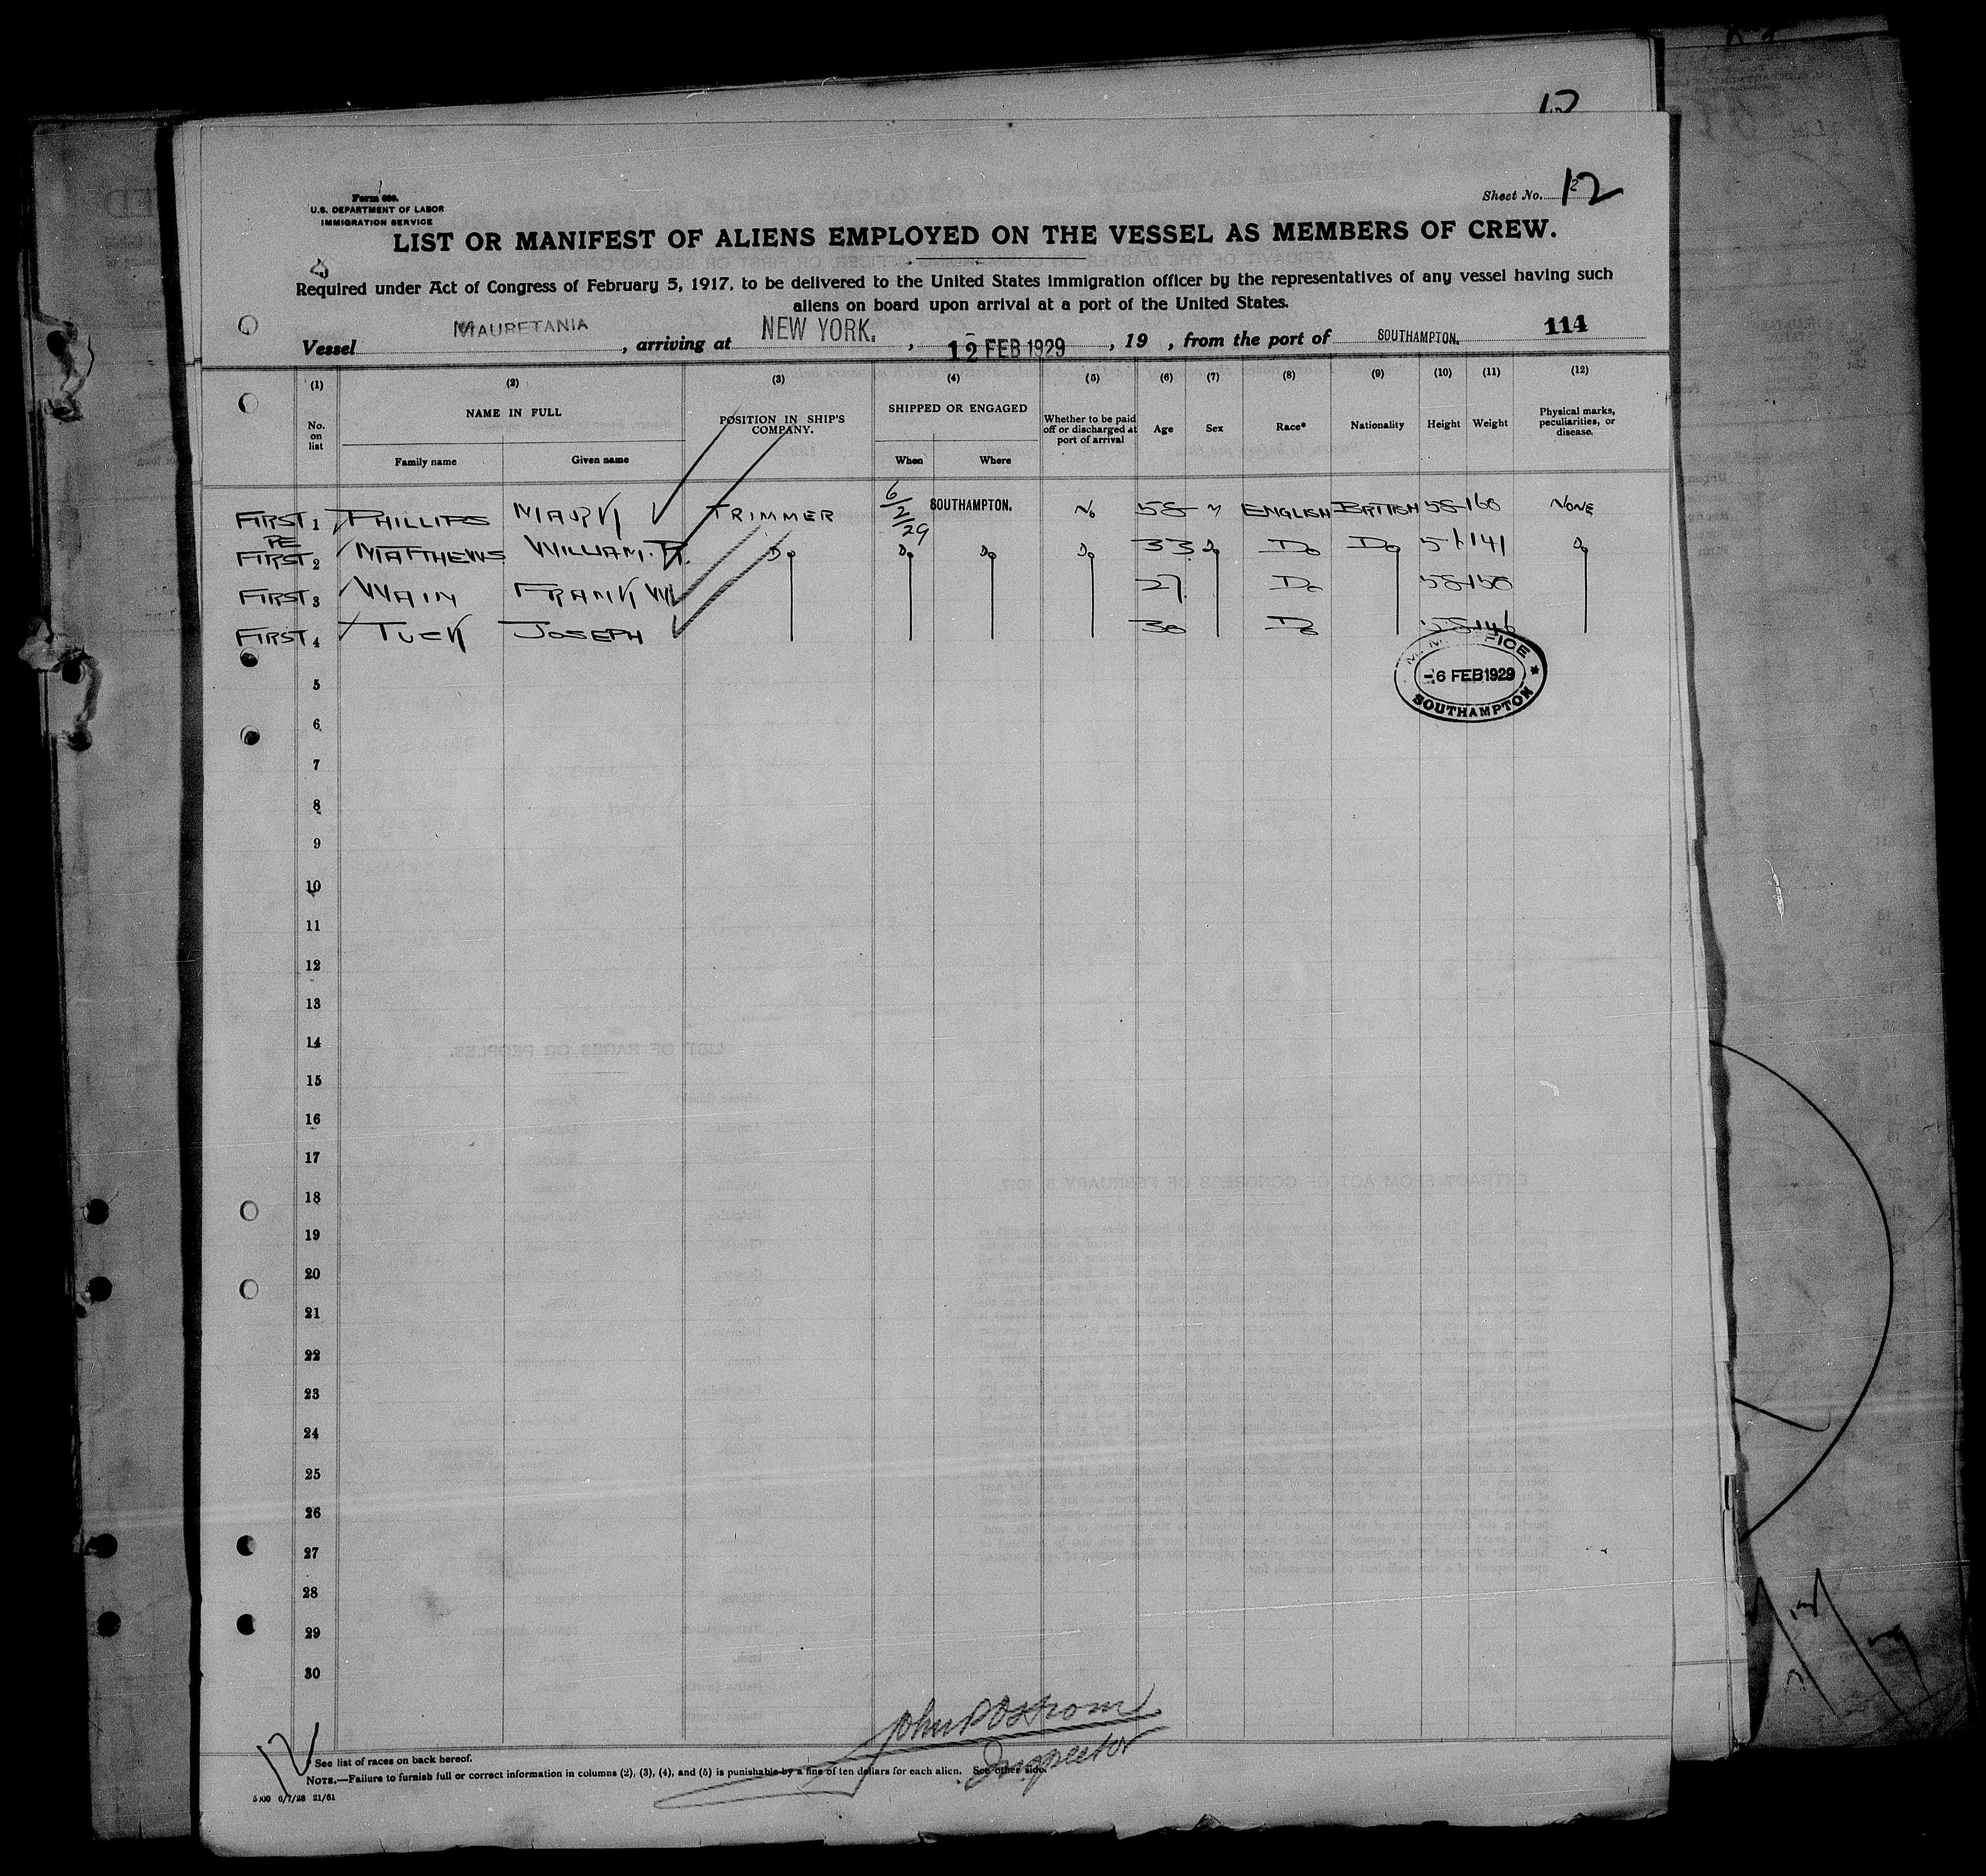 12
Sheet No. 12
Form 680.
U.S. DEPARTMENT OF LABOR
IMMIGRATION SERVICE
LIST OR MANIFEST OF ALIENS EMPLOYED ON THE VESSEL AS MEMBERS OF CREW.
Required under Act of Congress of February 5, 1917, to be delivered to the United States immigration officer by the representatives of any vessel having such
aliens on board upon arrival at a port of the United States.
114
Vessel MAURETANIA, arriving at NEW YORK., 12 FEB 1929, 19 , from the port of SOUTHAMPTON.
(1) (2) (3) (4) (5) (6) (7) (8) (9) (10) (11) (12)
No. on list
NAME IN FULL
Family name Given name
POSITION IN SHIP'S COMPANY.
SHIPPED OR ENGAGED
When Where
Whether to be paid off or discharged at port of arrival
Age Sex Race* Nationality Height Weight
Physical marks, peculiarities, or disease.
FIRST 1 PHILLIPS MARK TRIMMER 6/2/29 SOUTHAMPTON. No 58 M ENGLISH BRITISH 58 160 NONE
PE
FIRST 2 MATTHEWS WILLIAM. R. Do Do Do Do 33. Do Do Do 5-1 141 Do
FIRST 3 WAIN FRANK W 27. Do 58 150
FIRST 4 TUCK JOSEPH 30 Do 58 146
OFFICE
-6 FEB 1929
SOUTHAMPTON
5
6
7
8
9
10
11
12
13
14
15
16
17
18
19
20
21
22
23
24
25
26
27
28
29
30
John P Ostrom
Inspector
12
* See list of races on back hereof.
NOTE.—Failure to furnish full or correct information in columns (2), (3), (4), and (5) is punishable by a fine of ten dollars for each alien. See other side.
5500 6/7/28 21/61